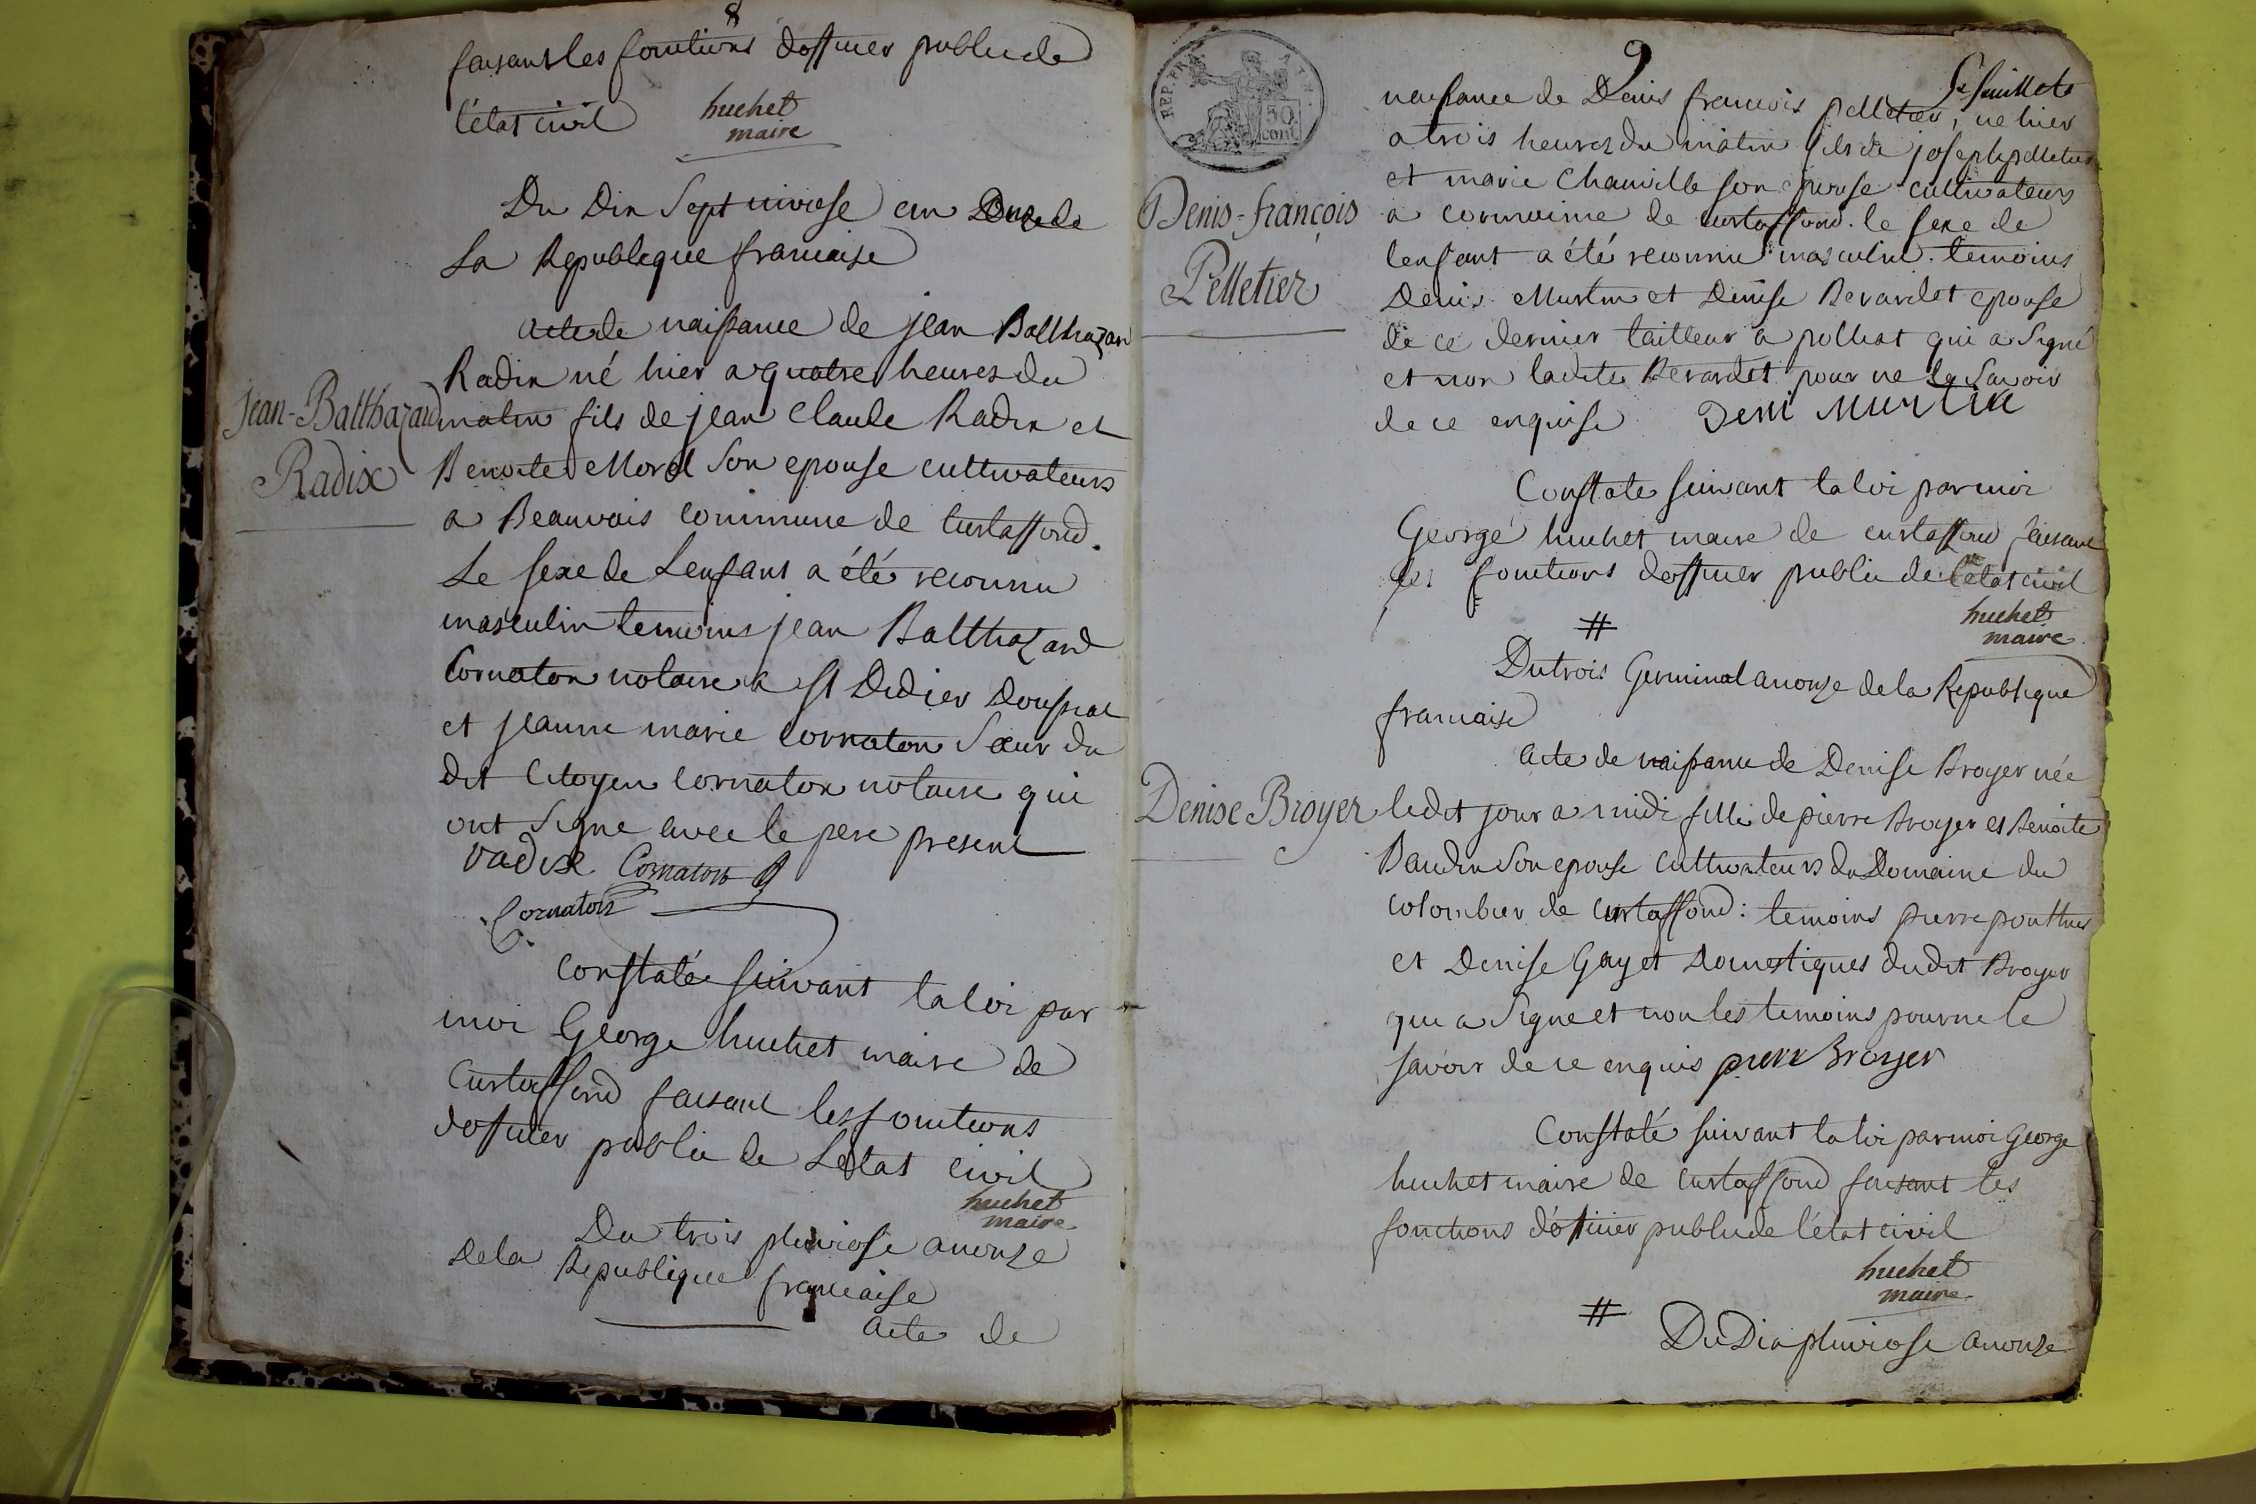 8
faisant les fonctions dofficier public de
l'état civil
huchet
maire
Du Dix Sept niviose an Onze de
La Republique francaise
acte de naissance de jean Balthazard
Jean-Balthazard
Radix
Radix né hier a quatre heures du
matin fils de jean Claude Radix et
Benoite Morel Son epouse cultivateurs
a Beauvais commune de Curtaffond.
Le sexe de Lenfant a été reconnu
masculin temoins jean Balthazard
Cornaton notaire a St Didier Doussiat
et jeanne marie cornaton Sœur du
dit Citoyen Cornaton notaire qui
ont Signe avec le pere present
radix Cornaton
Cornaton
Constaté suivant la loi par
moi George huchet maire de
Curtaffond faisant les fonctions
dofficier public de Létat civil
huchet
maire
Du trois pluviose an onze
De la Republique francaise
acte de
9
REP. FRA
50
cent
5e feuillet
Denis-françois
Pelletier
naissance de Denis francois pelletier, né hier
a trois heures du matin fils de joseph pelletier
et marie Chanville son epouse cultivateurs
a cormoime de curtaffond. le sexe de
lenfant a été reconnu masculin. temoins
Denis Murtin et Denise Bevardet epouse
de ce dernier tailleur a polliat qui a Signé
et non ladite Bevardet pour ne le Savoir
de ce enquise Deni Murtin
Constate suivant la loi par moi
George huchet maire de curtaffond faisant
les fonctions dofficier public de l'état civil
huchet
maire
#
Du trois Germinal an onze de la Republique
francaise
acte de naissance de Denise Broyer née
Denise Broyer
ledit jour a midi fille de pierre Broyer et Benoite
Baudin Son epouse cultivateurs du Domaine du
colombier de Curtaffond: temoins pierre ponthus
et Denise Gayet Domestiques dudit Broyer
qui a Signe et non les temoins pour ne le
savoir de ce enquis pierr Broyer
Constaté suivant la loi par moi George
huchet maire de Curtaffond faisant les
fonctions d'officier public de l'état civil
huchet
maire
#
Du Dix pluviose an onze